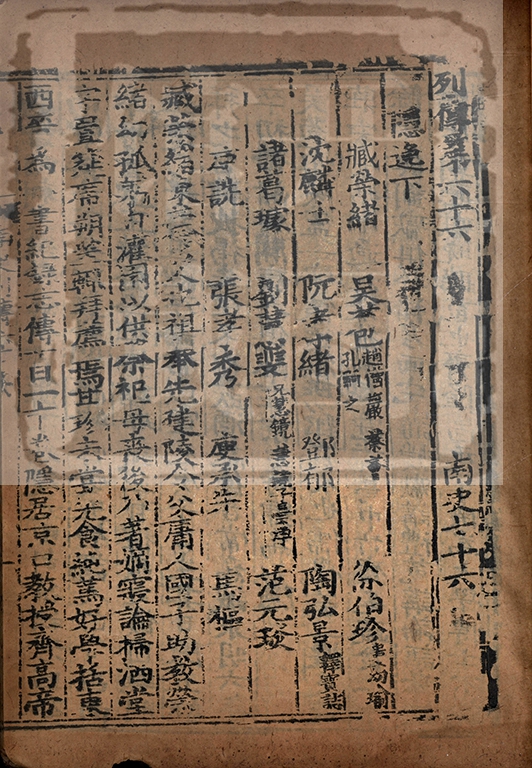 列傳第六十六 南史七十六
隱逸下
臧榮緒 吳苞 趙僧巖 蔡薈 孔嗣之 徐伯珍 婁幼瑜
沈麟士 阮孝緒 鄧郁 陶弘景 釋寶誌
諸葛璩 劉慧斐 兄慧鏡 慧鏡子曇淨 范元琰
庾詵 張孝秀 庾承先 馬樞
臧榮緒東莞莒人也祖奉先建陵令父庸人國子助教榮
緒幼孤躬自灌園以供祭祀母喪後乃著嫡寢論掃洒堂
宇置筵席朔望輒拜薦焉甘珍未嘗先食純篤好學括東
西晉為一書紀錄志傳百一十卷隱居京口教授齊高帝